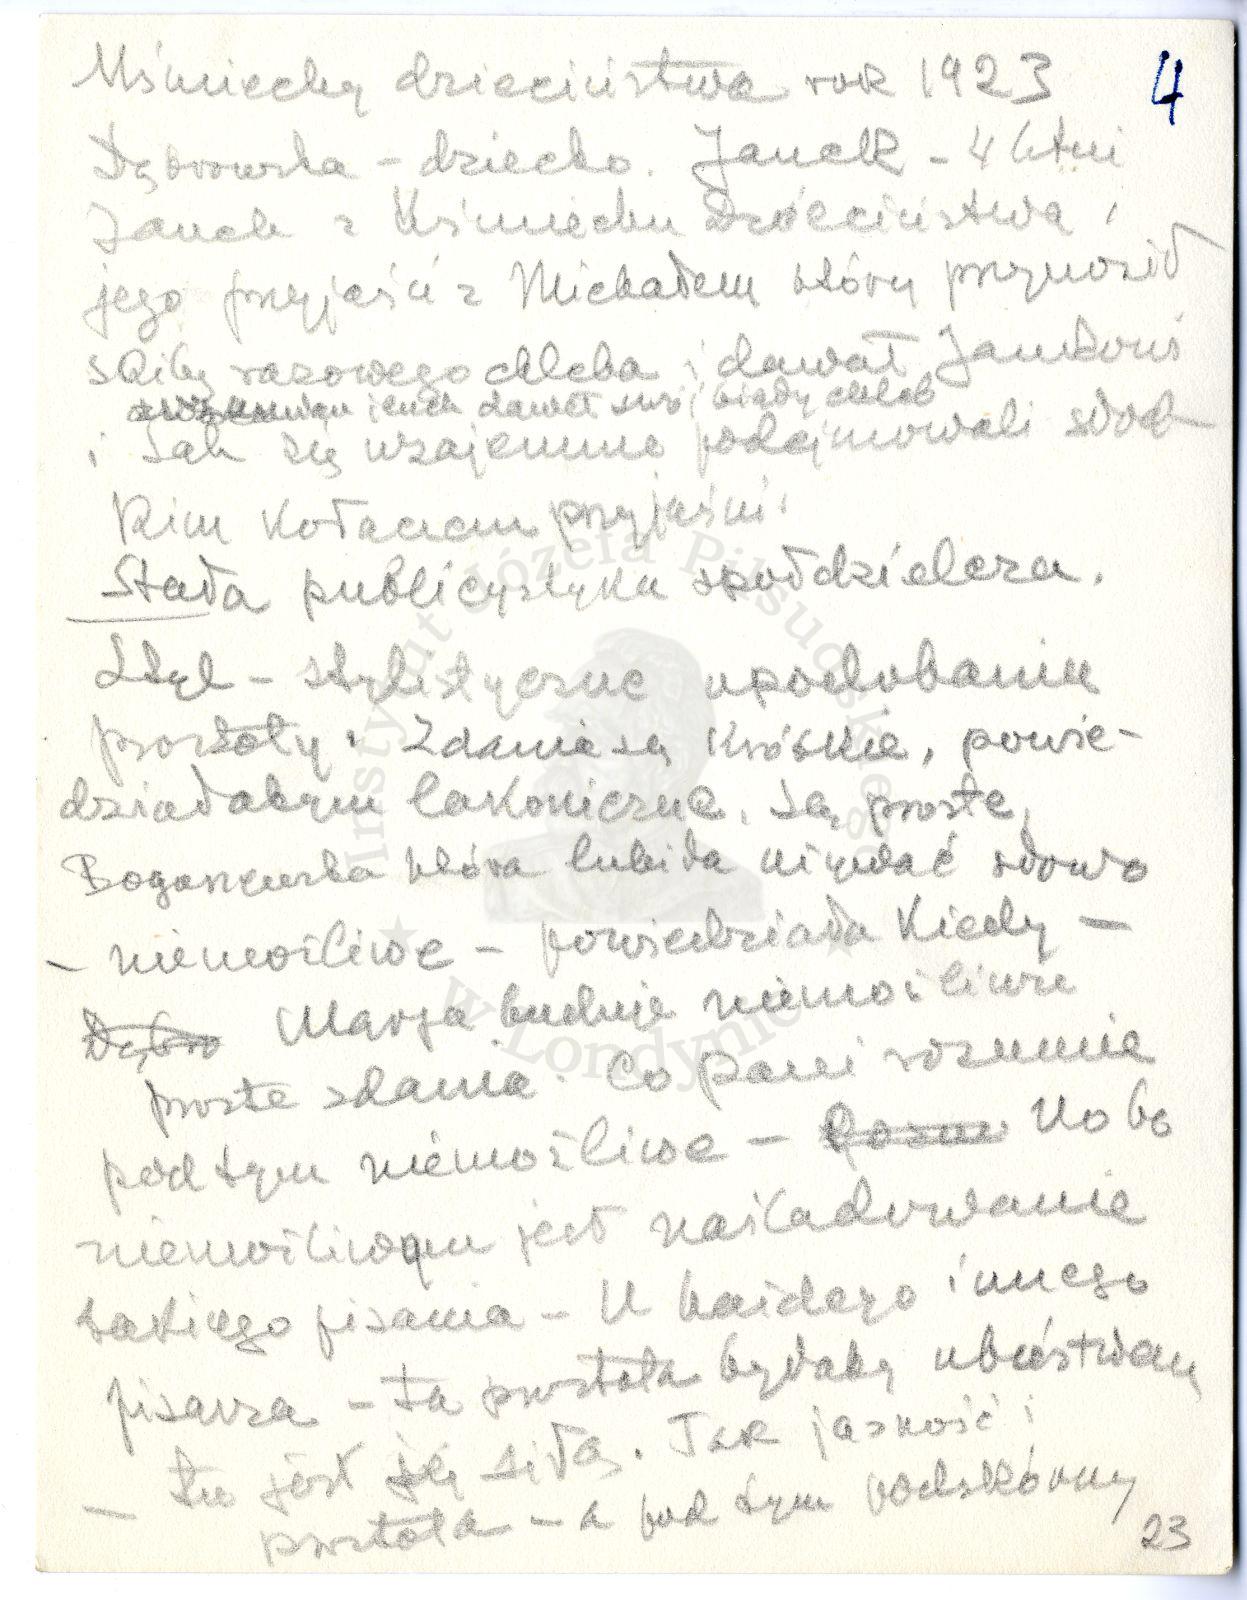 Uśmiechy dzieciństwa rok 1923
4
Dąbrowska – dziecko. Janek – 4 letni
Janek z Uśmiechu Dzieciństwa,
jego przyjaźń z Michałem który przynosił
skiby razowego chleba i dawał Jankowi
dawał swój biały chleb
i tak się wzajemnie podejmowali słod
kim kołaczem przyjaźni.
Stała publicystyka spółdzielcza.
Styl – stylistyczne upodobanie
prostoty. Zdania są krótkie, powie-
działabym lakoniczne, są proste,
Boguszewska która lubiła używać słowo
– niemożliwe – powiedziała kiedy –
Dąbro Marja buduje niemożliwie
proste zdania. Co pani rozumie
pod tym niemożliwe – No bo
niemożliwym jest naśladowanie
takiego pisania – U każdego innego
pisarza – ta prostota byłaby ubóstwem
– tu jest jej siłą. Tak jasność i
prostota – a pod tym podskórny
23
Instytut Józefa Piłsudskiego
w Londynie